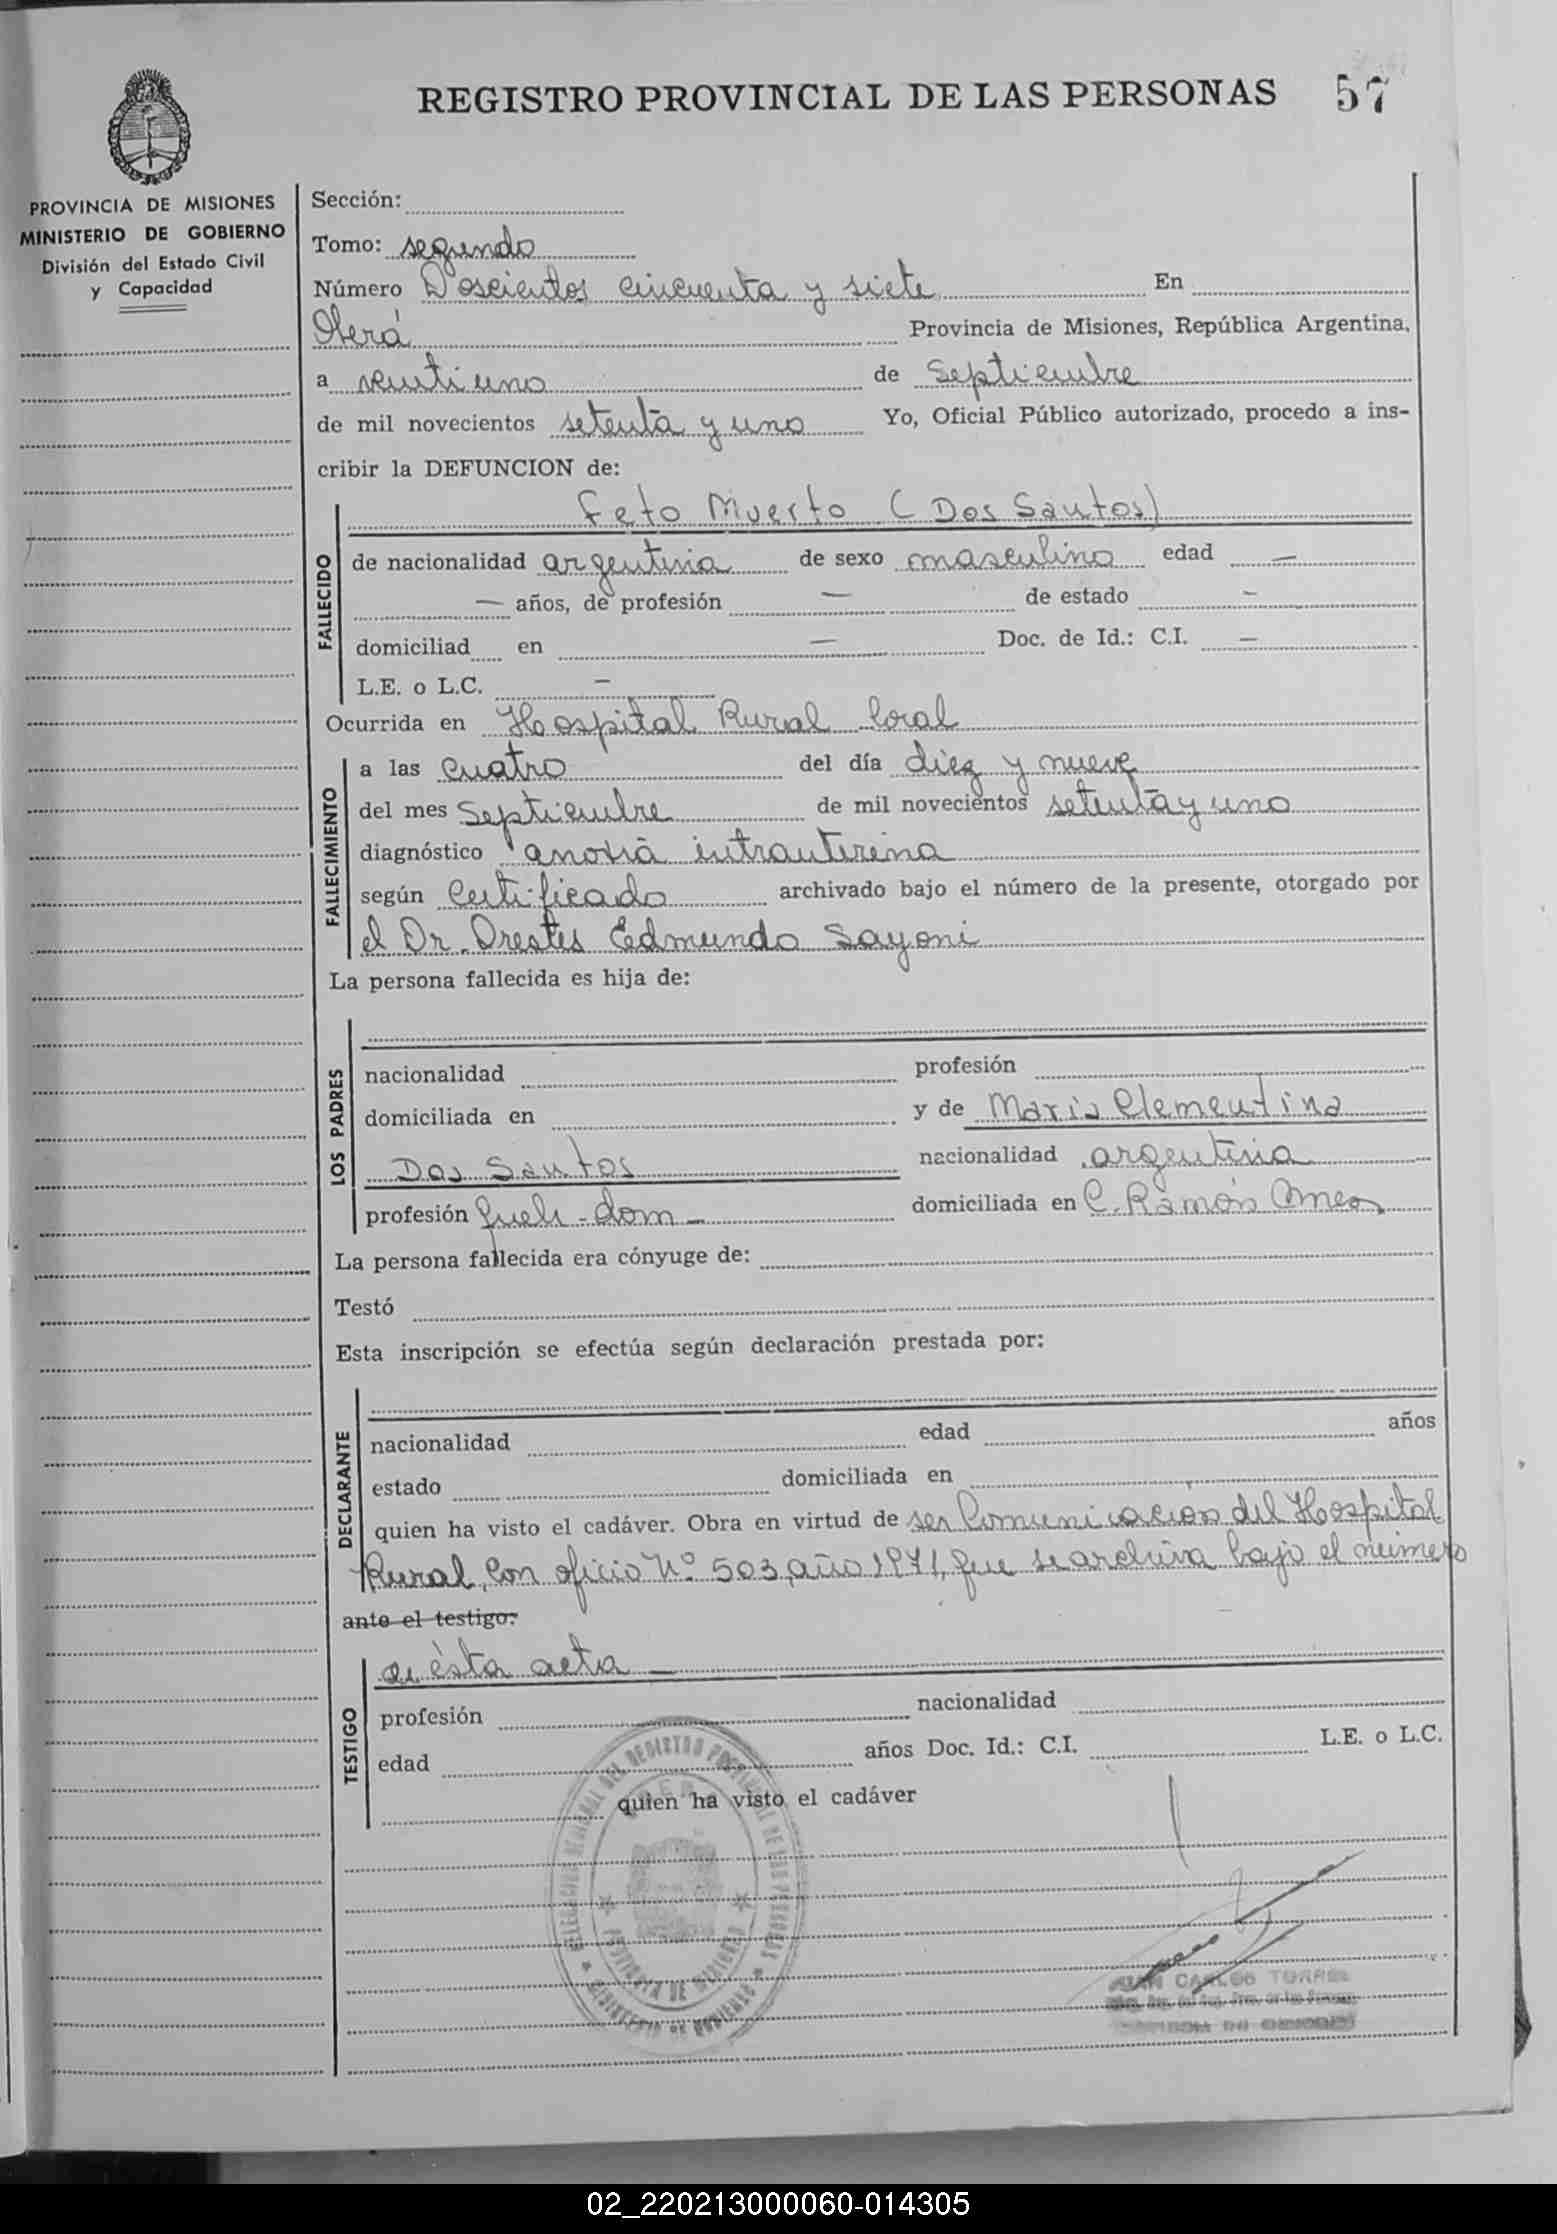 REGISTRO PROVINCIAL DE LAS PERSONAS 57
PROVINCIA DE MISIONES
MINISTERIO DE GOBIERNO
División del Estado Civil
y Capacidad
Sección:
Tomo: segundo
Número Doscientos cincuenta y siete En
Oberá Provincia de Misiones, República Argentina,
a veinti uno de Septiembre
de mil novecientos setenta y uno Yo, Oficial Público autorizado, procedo a ins-
cribir la DEFUNCION de:
FALLECIDO
Feto Muerto (Dos Santos)
de nacionalidad argentina de sexo masculino edad —
— años, de profesión — de estado —
domiciliad en — Doc. de Id.: C.I. —
L.E. o L.C. —
Ocurrida en Hospital Rural local
FALLECIMIENTO
a las cuatro del día diez y nueve
del mes Septiembre de mil novecientos setenta y uno
diagnóstico anoxia intrauterina
según Certificado archivado bajo el número de la presente, otorgado por
el Dr. Orestes Edmundo Sayoni
La persona fallecida es hija de:
LOS PADRES
nacionalidad profesión
domiciliada en y de Maria Clementina
Dos Santos nacionalidad argentina
profesión dom — domiciliada en C. Ramón
La persona fallecida era cónyuge de:
Testó
Esta inscripción se efectúa según declaración prestada por:
DECLARANTE
nacionalidad edad años
estado domiciliada en
quien ha visto el cadáver. Obra en virtud de ser Comunicación del Hospital
Rural, Con oficio Nº 503, año 1971, que se archiva bajo el número
ante el testigo:
de ésta acta —
TESTIGO
profesión nacionalidad
edad años Doc. Id.: C.I. L.E. o L.C.
quien ha visto el cadáver
JUAN CARLOS TORRES
02_220213000060-014305